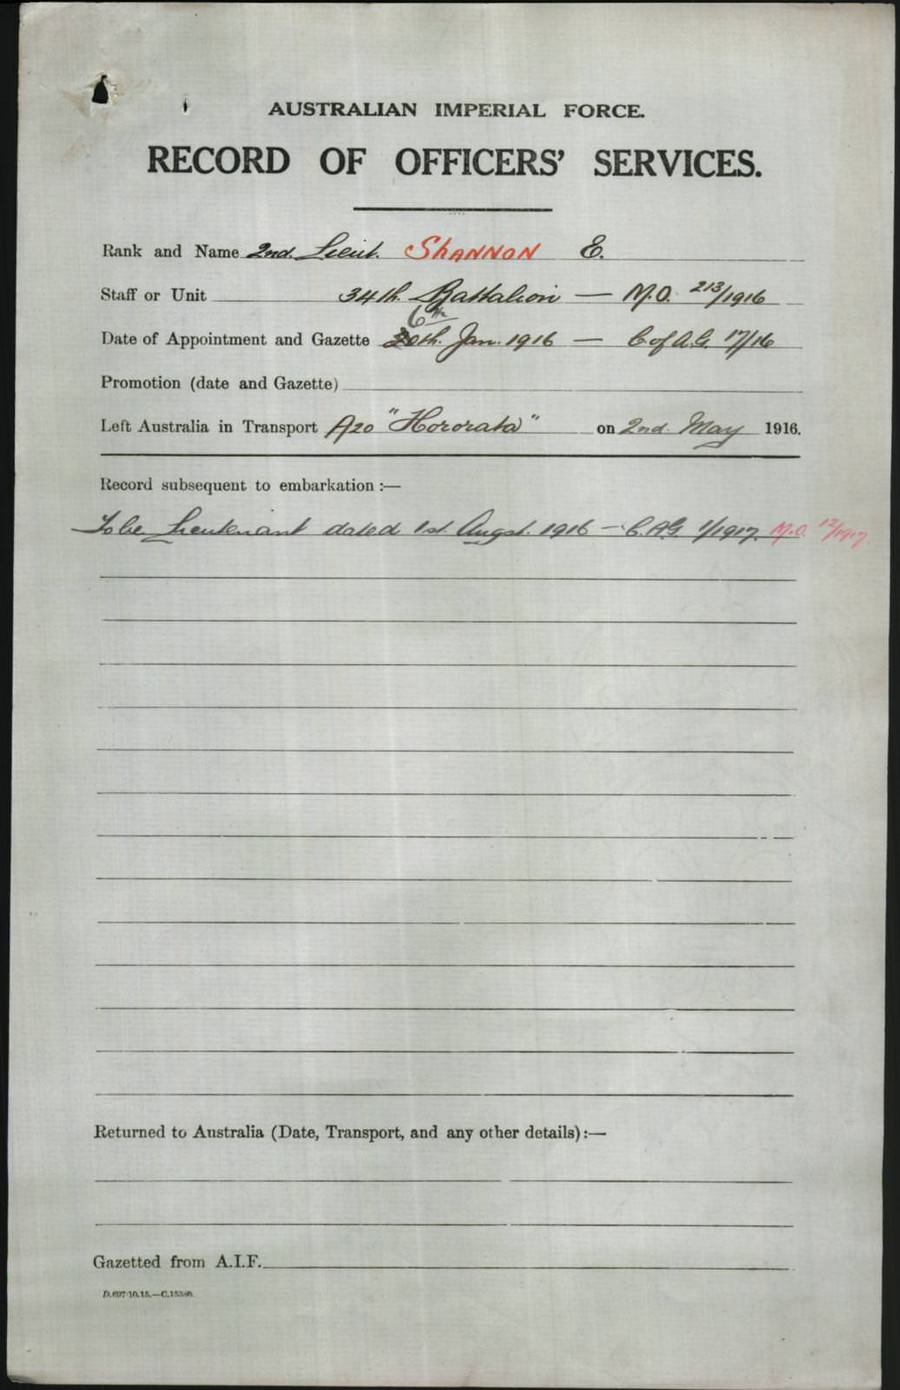 AUSTRALIAN IMPERIAL FORCE.
RECORD OF OFFICERS' SERVICES.
Rank and Name 2nd. Lieut. SHANNON E.
Staff or Unit 34th. Battalion — M.O. 213/1916
6th
Date of Appointment and Gazette 20th. Jan. 1916 — C of A.G. 17/16
Promotion (date and Gazette)
Left Australia in Transport A20 "Hororata" on 2nd. May 1916.
Record subsequent to embarkation :—
To be Lieutenant dated 1st. Augst. 1916 — C.A.G. 1/1917. M.O. 12/1917
Returned to Australia (Date, Transport, and any other details) :—
Gazetted from A.I.F.